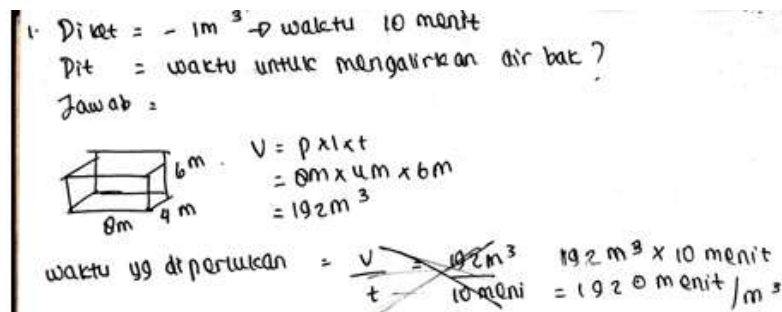 1. Diket = - 1m³ → waktu 10 menit
Dit = waktu untuk mengalirkan air bak?
Jawab =
6m
8m 4m
V = p x l x t
= 8m x 4m x 6m
= 192m³
waktu yg diperlukan = V/t = 192m³/10 meni
192 m³ x 10 menit
= 1920 menit/m³